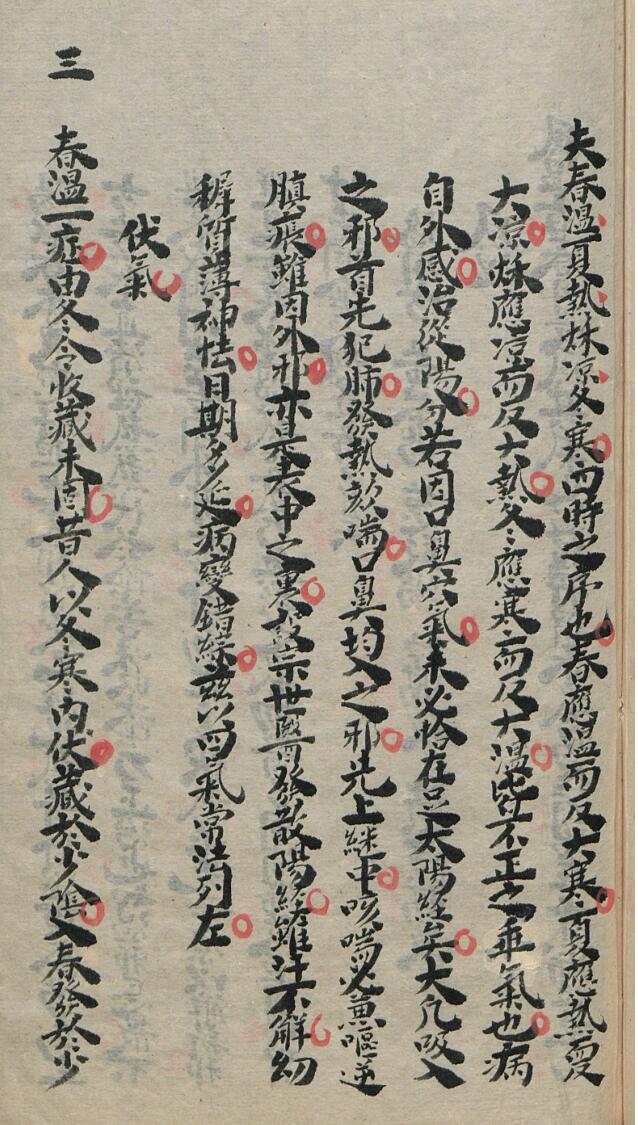 夫春温夏熱秌凉冬寒四時之序也春應温而反大寒夏應熱而反
大凉秌應凉而反大熱冬應寒而反大温皆不正之乖氣也病
自外感治從陽分若因口鼻受氣未必恰在足太陽經矣大凡吸入
之邪首先犯肺發熱欬喘口鼻均入之邪先上継中咳喘必兼嘔逆
䐜痕雖因外邪亦是表中之裏設宗世醫發散陽経雖汗不解幼
穉質薄神怯日期多延病變錯綜兹以四氣常法列左
伏氣
三 春温一症由冬令收藏未固昔人以冬寒内伏藏於少陰入春發於少